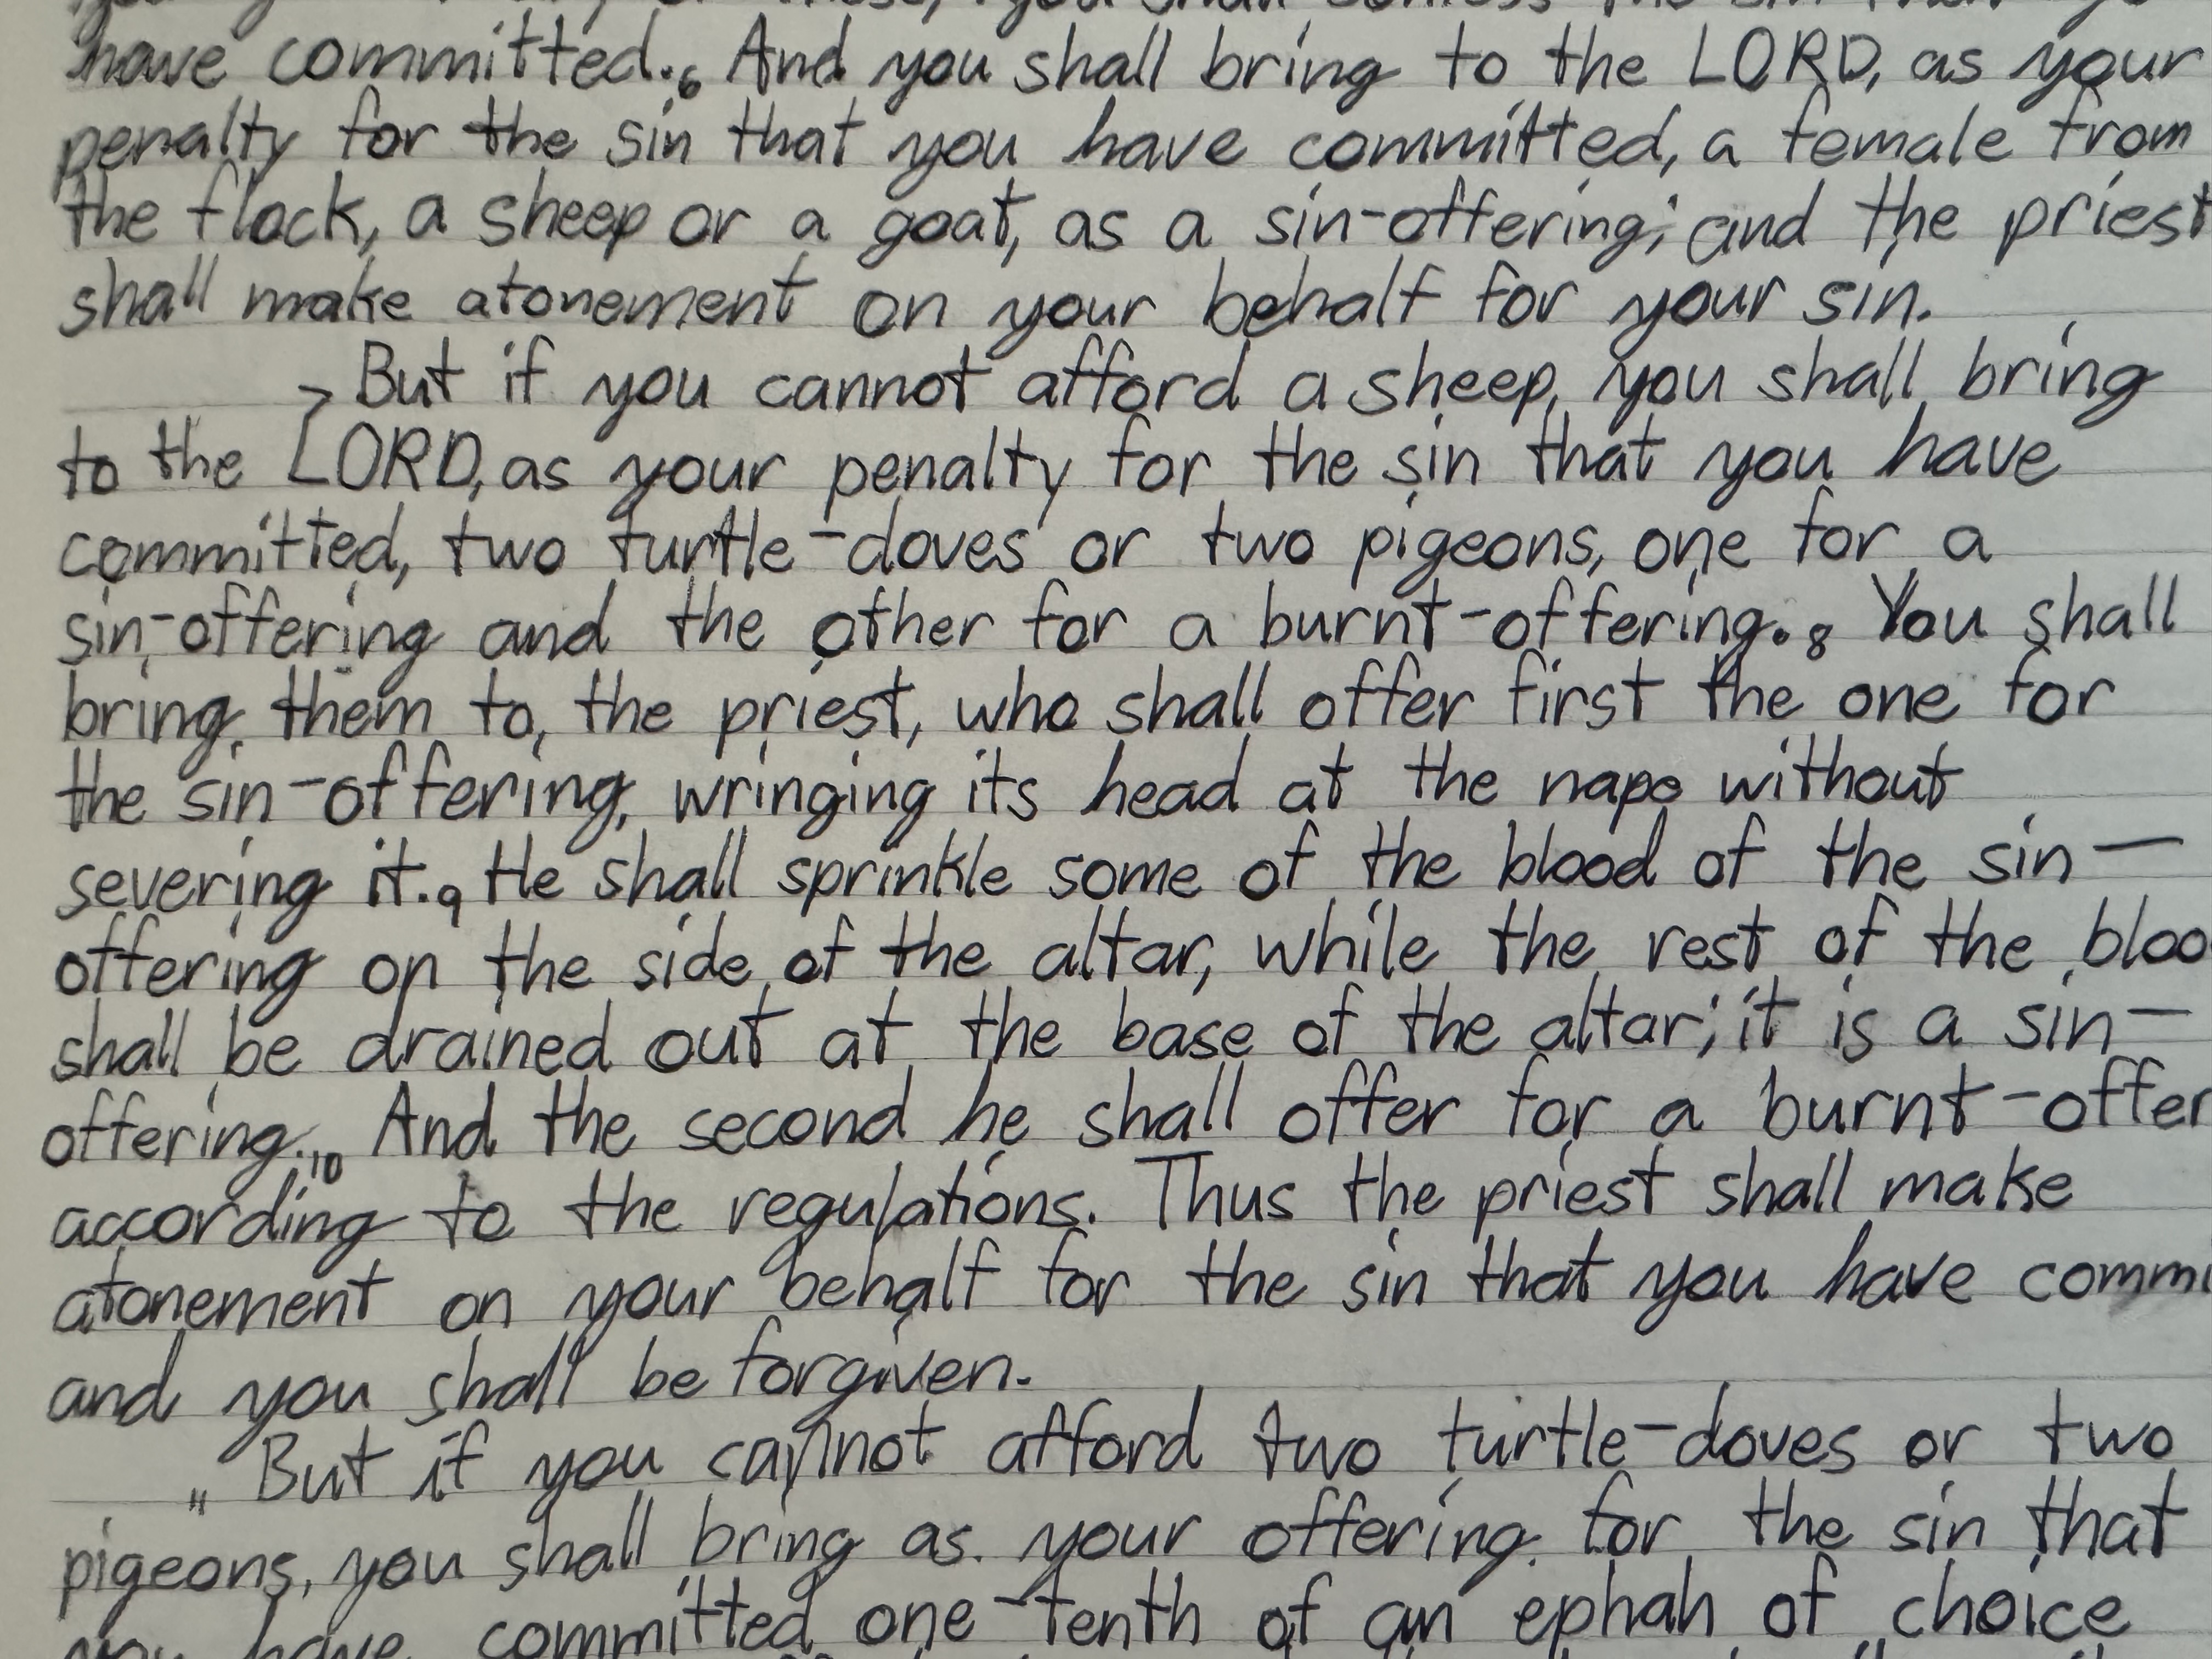 you shall confess the sin that
have committed. 6 And you shall bring to the LORD, as your
penalty for the sin that you have committed, a female from
the flock, a sheep or a goat, as a sin-offering; and the priest
shall make atonement on your behalf for your sin.
7 But if you cannot afford a sheep, you shall bring
to the LORD, as your penalty for the sin that you have
committed, two turtle-doves or two pigeons, one for a
sin-offering and the other for a burnt-offering. 8 You shall
bring them to the priest, who shall offer first the one for
the sin-offering, wringing its head at the nape without
severing it. 9 He shall sprinkle some of the blood of the sin-
offering on the side of the altar, while the rest of the bloo
shall be drained out at the base of the altar; it is a sin-
offering. 10 And the second he shall offer for a burnt-offer
according to the regulations. Thus the priest shall make
atonement on your behalf for the sin that you have commi
and you shall be forgiven.
11 But if you cannot afford two turtle-doves or two
pigeons, you shall bring as your offering for the sin that
you have committed one-tenth of an ephah of choice